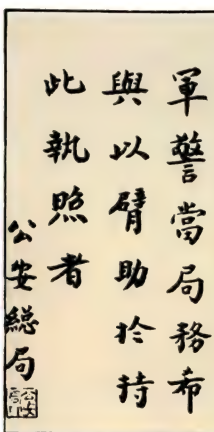 軍警當局務希
與以臂助於持
此執照者
公安総局